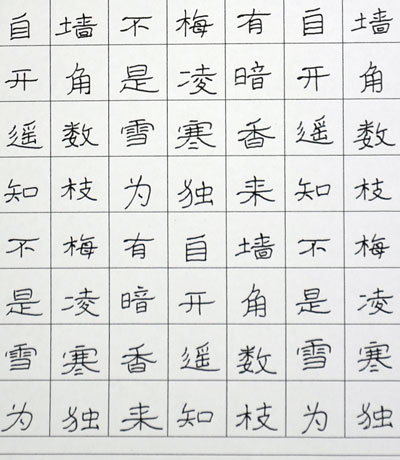 墙角数枝梅凌寒独
自开遥知不是雪为
有暗香来墙角数枝
梅凌寒独自开遥知
不是雪为有暗香来
墙角数枝梅凌寒独
自开遥知不是雪为